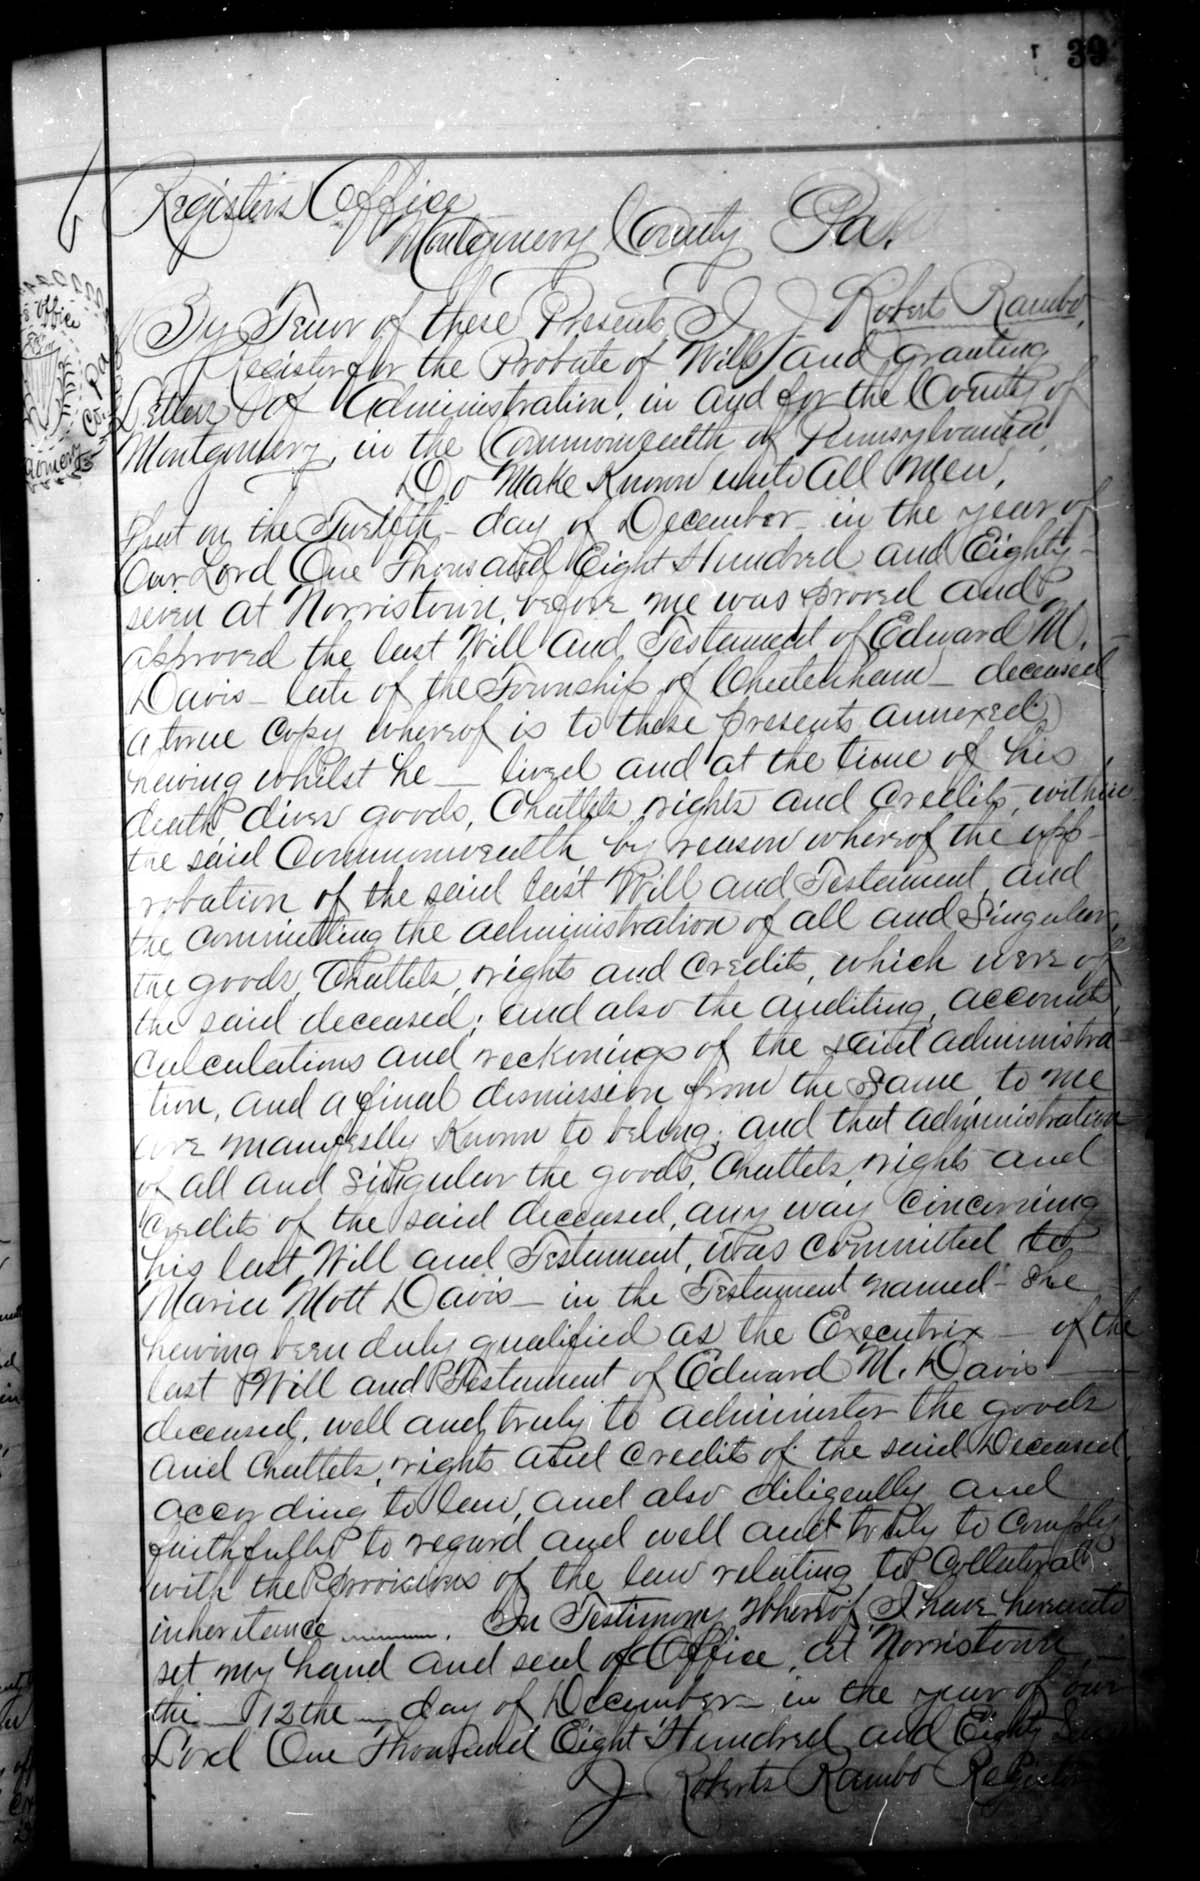 39
Registers Office
Montgomery County Pa.
By Tenor of these Presents, I J Roberts Rambo,
Register for the Probate of Wills, and granting
Letters of Administration, in and for the County of
Montgomery, in the Commonwealth of Pennsylvania,
Do Make Known unto All Men,
That on the Twelfth - day of December - in the year of
Our Lord One Thousand Eight Hundred and Eighty -
seven at Norristown, before me was proved and
approved the last Will and Testament of Edward M. -
Davis - late of the Township of Cheltenham - deceased
a true Copy whereof is to these presents annexed,
having whilst he - lived and at the time of his
death, divers goods, Chattels, rights and Credits, within
the said Commonwealth by reason whereof the app-
robation of the said last Will and Testament, and
the committing the administration of all and Singular,
the goods, Chattels, rights and Credits, which were of
the said deceased; and also the auditing, accounts,
calculations and reckonings of the said administra-
tion, and a final dismission from the Same, to me
are manifestly Known to belong; and that administration
of all and Singular the goods, Chattels, rights and
Credits of the said deceased, any way concerning
his last Will and Testament, was committed to
Maria Mott Davis - in the Testament named - She
having been duly qualified as the Executrix - of the
last Will and Testament of Edward M. Davis -
deceased, well and truly to administer the goods
and Chattels, rights and credits of the said Deceased,
according to law, and also diligently and
faithfully to regard and well and truly to Comply
with the Provisions of the law relating to Collateral
inheritance. In Testimony Whereof I have hereunto
set my hand and seal of Office, at Norristown, -
the - 12the - day of December - in the year of our
Lord One Thousand Eight Hundred and Eighty Seven
J Roberts Rambo Register
Office
Co. Pa